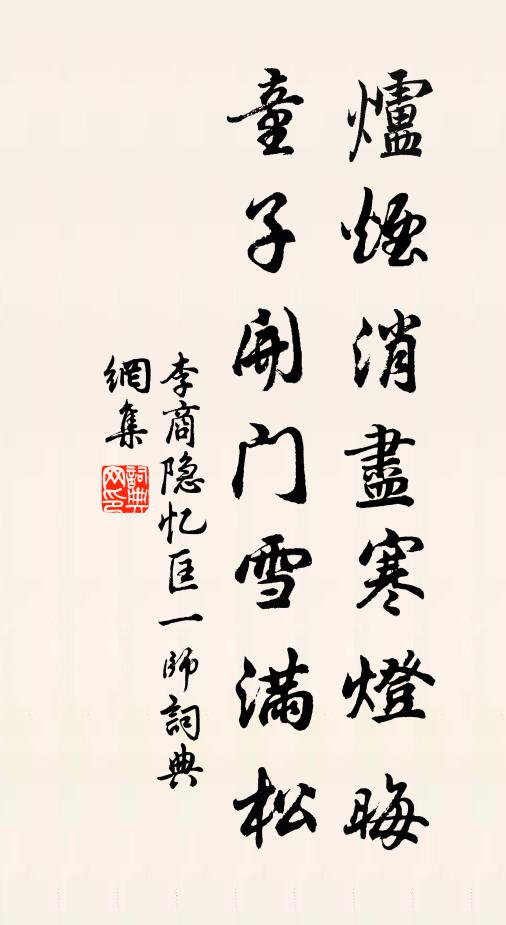 爐煙消盡寒燈晦
童子開门雪满松
李商隐忆匡一師詞典
網集
詞典网印